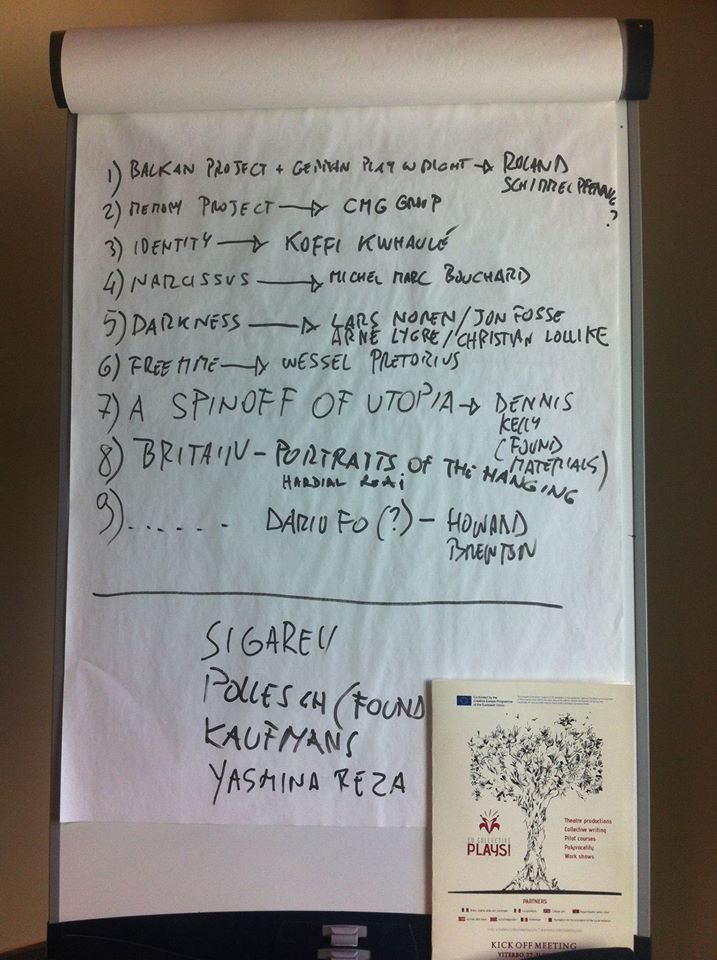 1) BALKAN PROJECT + GERMAN PLAYWRIGHT → ROLAND
SCHIMMELPFENNIG
?
2) MEMORY PROJECT → CMG GROUP
3) IDENTITY → KOFFI KWHAULÉ
4) NARCISSUS → MICHEL MARC BOUCHARD
5) DARKNESS → LARS NOREN / JON FOSSE
ARNE LYGRE / CHRISTIAN LOLLIKE
6) FREE TIME → WESSEL PRETORIUS
7) A SPINOFF OF UTOPIA → DENNIS
KELLY
(FOUND
MATERIALS)
8) BRITAIN - PORTRAITS OF THE HANGING
9) ...... DARIO FO (?) - HOWARD
BRENTON
SIGAREV
POLLESCH (FOUND
KAUFMANS
YASMINA REZA
Co-funded by the
Creative Europe Programme
of the European Union
EU COLLECTIVE
PLAYS!
Theatre productions
Collective writing
Pilot courses
Polyvocality
Work shows
PARTNERS
KICK OFF MEETING